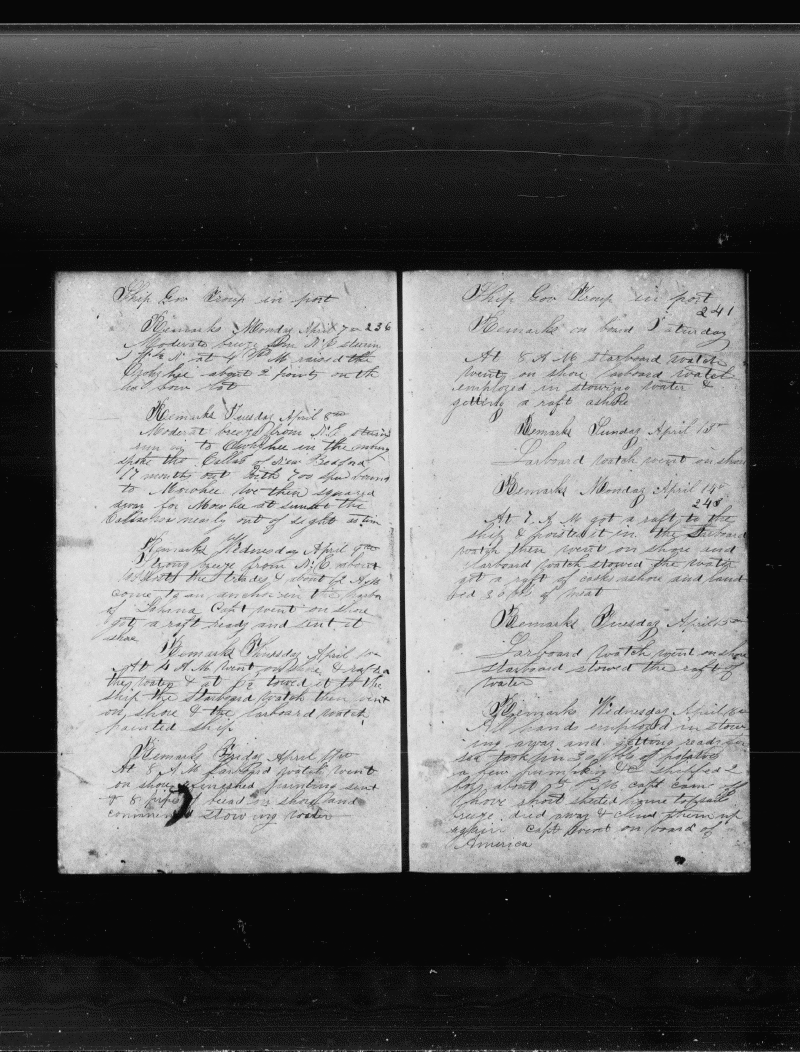 Ship Gov Troup in port
Remarks Monday April 7th 236
Moderate breeze from N.E steering
at 4 P M raised the
about 2 points on the
lee bow
Remarks Tuesday April 8th
Moderate breeze from N.E steering
run in to Owhyhee in the morning
spoke the Callao of New Bedford
17 months out with 700 sperm bound
to Mowhee we then squared
away for Mowhee at sunset the
Callao was nearly out of sight astern
Remarks Wednesday April 9th
Strong breeze from N.E about
the trades & about 12 A M
come to an anchor in the harbor
of Lahina Capt went on shore
got a raft ready and sent it
shoe
Remarks Thursday April 10th
At 4 A M went on shore & raft
the water & at towed it to the
ship the Starboard watch then went
on shore & the larboard watch
painted ship
Remarks Friday April 11th
At 8 A M Larboard watch went
on shore finished painting sent
8 of bread on shore and
commenced stowing water
Ship Gov Troup in port
241
Remarks on board Saturday
At 8 A M starboard watch
went on shore larboard watch
employed in stowing water &
getting a raft ashore
Remarks Sunday April 13th
Larboard watch went on shore
Remarks Monday April 14th
243
At 7 A M got a raft to the
ship & hoisted it in the Starboard
watch then went on shore and
larboard watch stowed the water
got a raft of casks ashore and land
ed 36 of meat
Remarks Tuesday April 15th
Larboard watch went on shore
starboard stowed the raft of
water
Remarks Wednesday April 16th
All hands employed in stow
ing away and getting ready for
sea took in 3 bbls of potatoes
a few pumpkins &c shipped 2
boys about P M capt came off
hove short sheeted home topsails
breeze died away & clued them up
again Capt went on board of
America